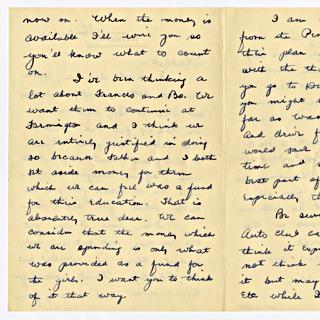 now on. When the money is
available I'll wire you so
you'll know what to count
on.
I've been thinking a
lot about Frances and Bo. We
want them to continue at
Farmington and I think we
are entirely justified in doing
so because Father and I both
set aside money for them
which we can feel was a fund
for their education. That is
absolutely true dear. We can
consider that the money which
we are spending is only what
was provided as a fund for
the girls. I want you to think
of it that way.
I am
from the
this plan
with the
you go to
you might
far as
and drive
would
time and
best part of
Especially
Be sure
Auto club
think it
not think
it but may
Etc while